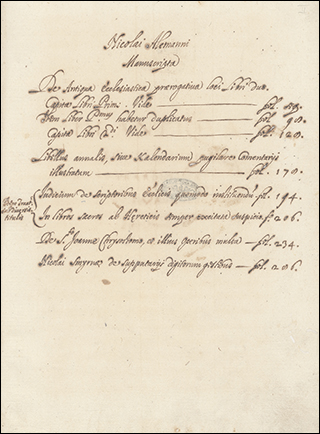 Nicolai Alemanni
Manuscripta
De Antiqua Ecclesiastica prærogativa loci Libri duo.
Capita Libri Primi. Vide fol.
Item Liber Primus habetur duplicatus fol. 90.
Capita Libri Vide fol. 120.
Libellus annalis, sive Kalendarium pugillare Comentarijs
illustratum fol. 170.
Iudicium de Scriptoribus instituendu fol. 194.
In libros sacros ab Hereticis semper f. 206.
De S. Joanne Chrysostomo, et illius operibus multa fol. 234.
Nicolai Smyrnæ de supputatijs digitorum gestibus fol. 206.